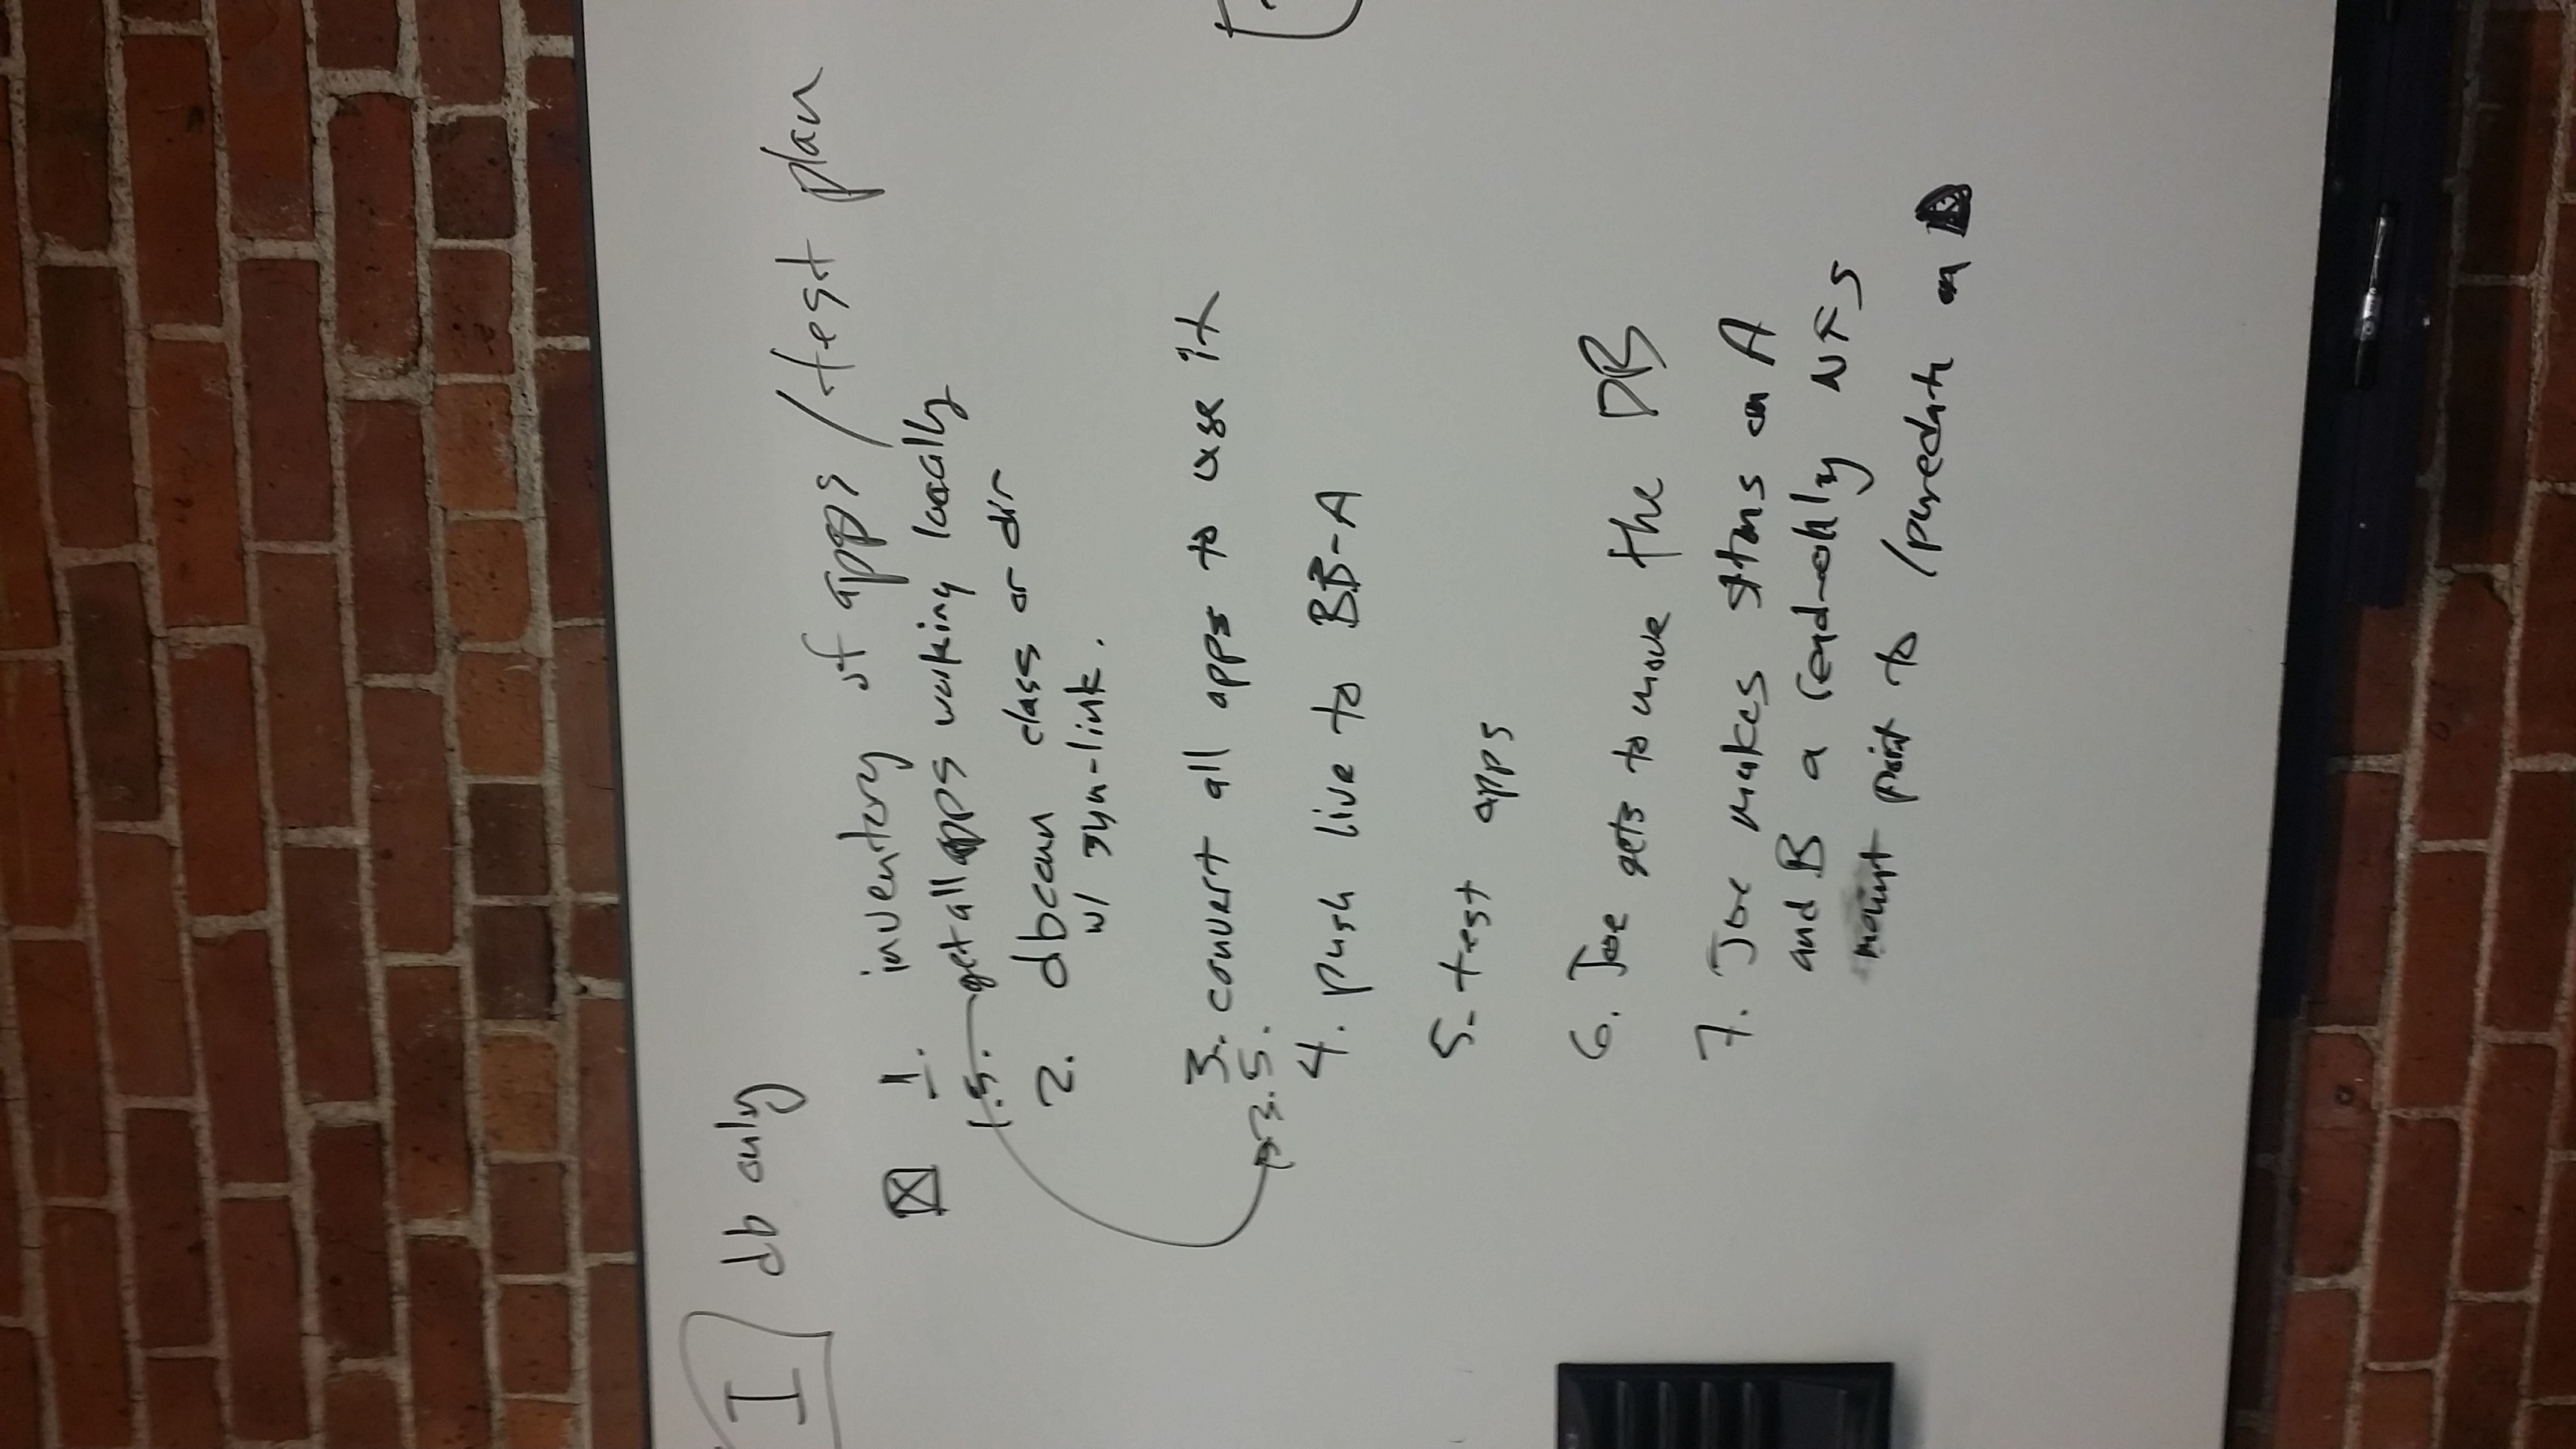 I db only
1. inventory of apps/test plan
1.5. get all apps working locally
2. dbconn class or dir
w/ sym-link.
3. convert all apps to use it
→3.5.
4. push live to BB-A
5. test apps
6. Joe gets to move the DB
7. Joe makes on A
and B a read-only NFS
mount point to /puredata on